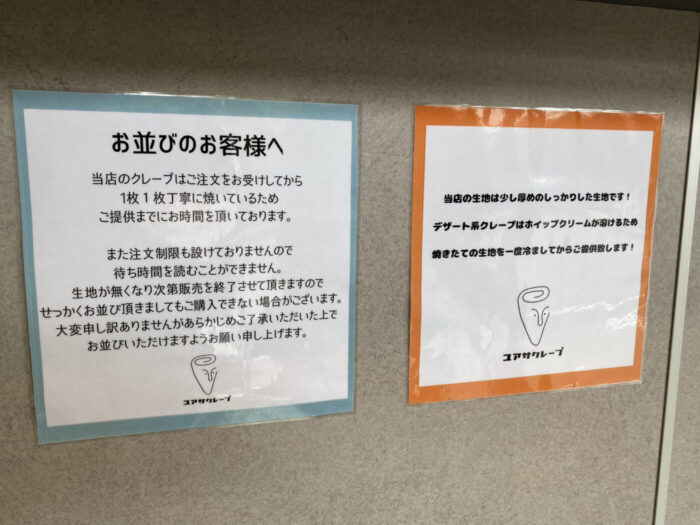 お並びのお客様へ
当店のクレープはご注文をお受けしてから
1枚1枚丁寧に焼いているため
ご提供までにお時間を頂いております。
また注文制限も設けておりませんので
待ち時間を読むことができません。
生地が無くなり次第販売を終了させて頂きますので
せっかくお並び頂きましてもご購入できない場合がございます。
大変申し訳ありませんがあらかじめご了承いただいた上で
お並びいただけますようお願い申し上げます。
ユアサクレープ
当店の生地は少し厚めのしっかりした生地です！
デザート系クレープはホイップクリームが溶けるため
焼きたての生地を一度冷ましてからご提供致します！
ユアサクレープ